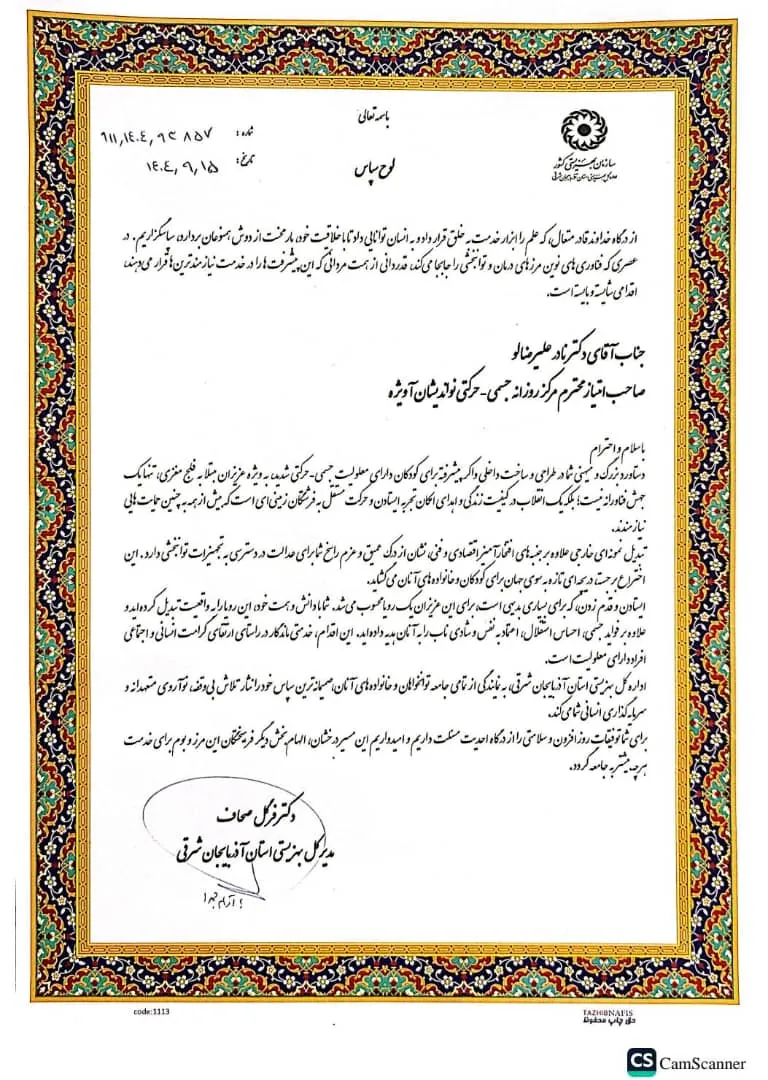 باسمه تعالی
شماره: ۹۱۱,۱۴۰۴,۹۲۸۵۷
تاریخ: ۱۴۰۴,۹,۱۵
لوح سپاس
سازمان بهزیستی کشور
اداره کل بهزیستی استان آذربایجان شرقی
از درگاه خداوند قادر متعال، که علم را ابزار خدمت به خلق قرار داد و به انسان توانایی داد تا با خلاقیت خود، بار محنت از دوش همنوعان بردارد، سپاسگزاریم. در
عصری که فناوری های نوین مرزهای درمان و توانبخشی را جابجا می کند، قدردانی از همت مردانی که این پیشرفت ها را در خدمت نیازمندترین ها قرار می دهند،
اقدامی شایسته و بایسته است.
جناب آقای دکتر نادر علیرضالو
صاحب امتیاز محترم مرکز روزانه جسمی-حرکتی نواندیشان آویژه
باسلام و احترام
دستاورد بزرگ و میهنی شما در طراحی و ساخت داخلی واکر پیشرفته برای کودکان دارای معلولیت جسمی-حرکتی شدید، به ویژه عزیزان مبتلا به فلج مغزی، تنها یک
جهش فناورانه نیست؛ بلکه یک انقلاب در کیفیت زندگی و اهدای امکان تجربه ایستادن و حرکت مستقل به فرشتگان زمینی ای است که بیش از همه به چنین حمایت هایی
نیازمندند.
تبدیل نمونه ای خارجی علاوه بر جنبه های افتخارآمیز اقتصادی و فنی، نشان از درک عمیق و عزم راسخ شما برای عدالت در دسترسی به تجهیزات توانبخشی دارد. این
اختراع برجسته دریچه ای تازه به سوی جهان برای کودکان و خانواده های آنان می گشاید.
ایستادن و قدم زدن، که برای بسیاری بدیهی است، برای این عزیزان یک رویا محسوب می شد. شما با دانش و همت خود، این رویا را به واقعیت تبدیل کرده اید و
علاوه بر فواید جسمی، احساس استقلال، اعتماد به نفس و شادی ناب را به آنان هدیه داده اید. این اقدام، خدمتی ماندگار در راستای ارتقای کرامت انسانی و اجتماعی
افراد دارای معلولیت است.
اداره کل بهزیستی استان آذربایجان شرقی، به نمایندگی از تمامی جامعه توانخواهان و خانواده های آنان، صمیمانه ترین سپاس خود را نثار تلاش بی وقفه، نوآروی متعهدانه و
سرمایه گذاری انسانی شما می کند.
برای شما توفیقات روز افزون و سلامتی را از درگاه احدیت مسئلت داریم و امیدواریم این مسیر درخشان، الهام بخش دیگر فرهیختگان این مرز و بوم برای خدمت
هرچه بیشتر به جامعه گردد.
دکتر فرگل صحاف
مدیر کل بهزیستی استان آذربایجان شرقی
code:1113
TAZHIBNAFIS
حق چاپ محفوظ
CS CamScanner